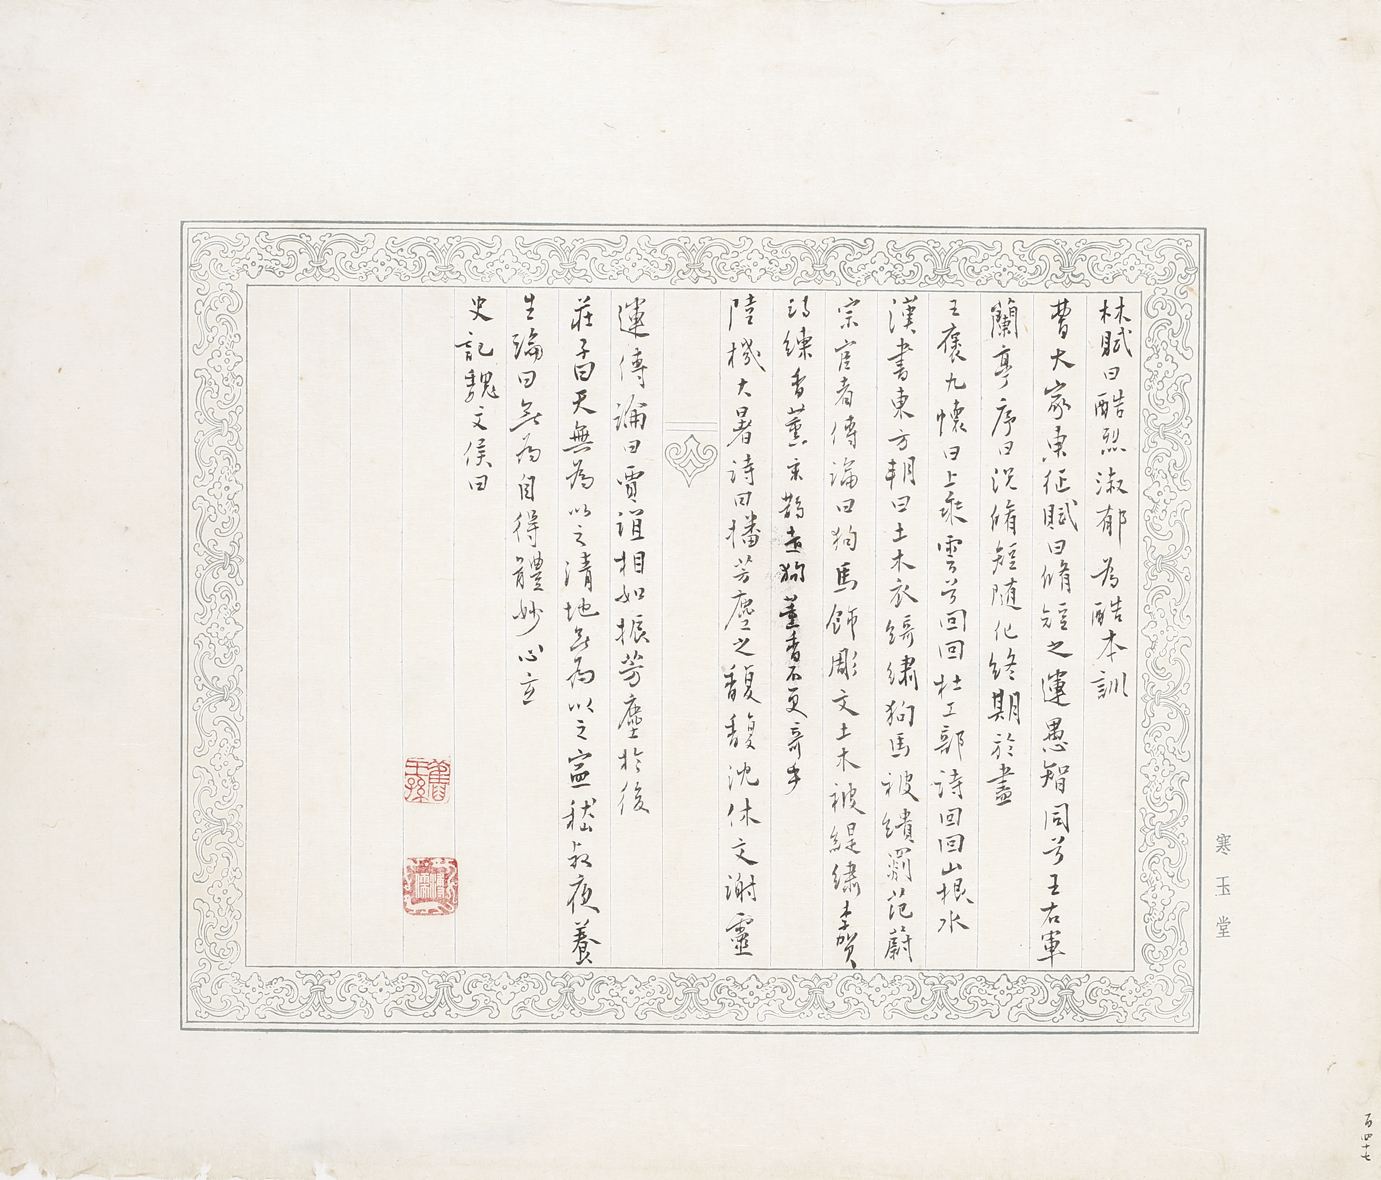 林賦曰酷烈淑郁為酷本訓
曹大家東征賦曰脩短之運愚智同兮王右軍
蘭亭序曰況脩短隨化終期於盡
王褒九懷曰上乘雲兮回回杜工部詩回回山根水
漢書東方朔曰土木衣綺繡狗馬被繢罽范蔚
宗宦者傳論曰狗馬飾雕文土木被緹繡李賀
詩練香薰宋鵲走狗薰香不更奇乎
陸機大暑詩曰播芳塵之馥馥沈休文謝靈
運傳論曰賈誼相如振芳塵於後
莊子曰天無為以之清地無為以之寧嵇叔夜養
生論曰無為自得體妙心玄
史記魏文侯曰
舊王孫
溥儒
寒玉堂
百四十七